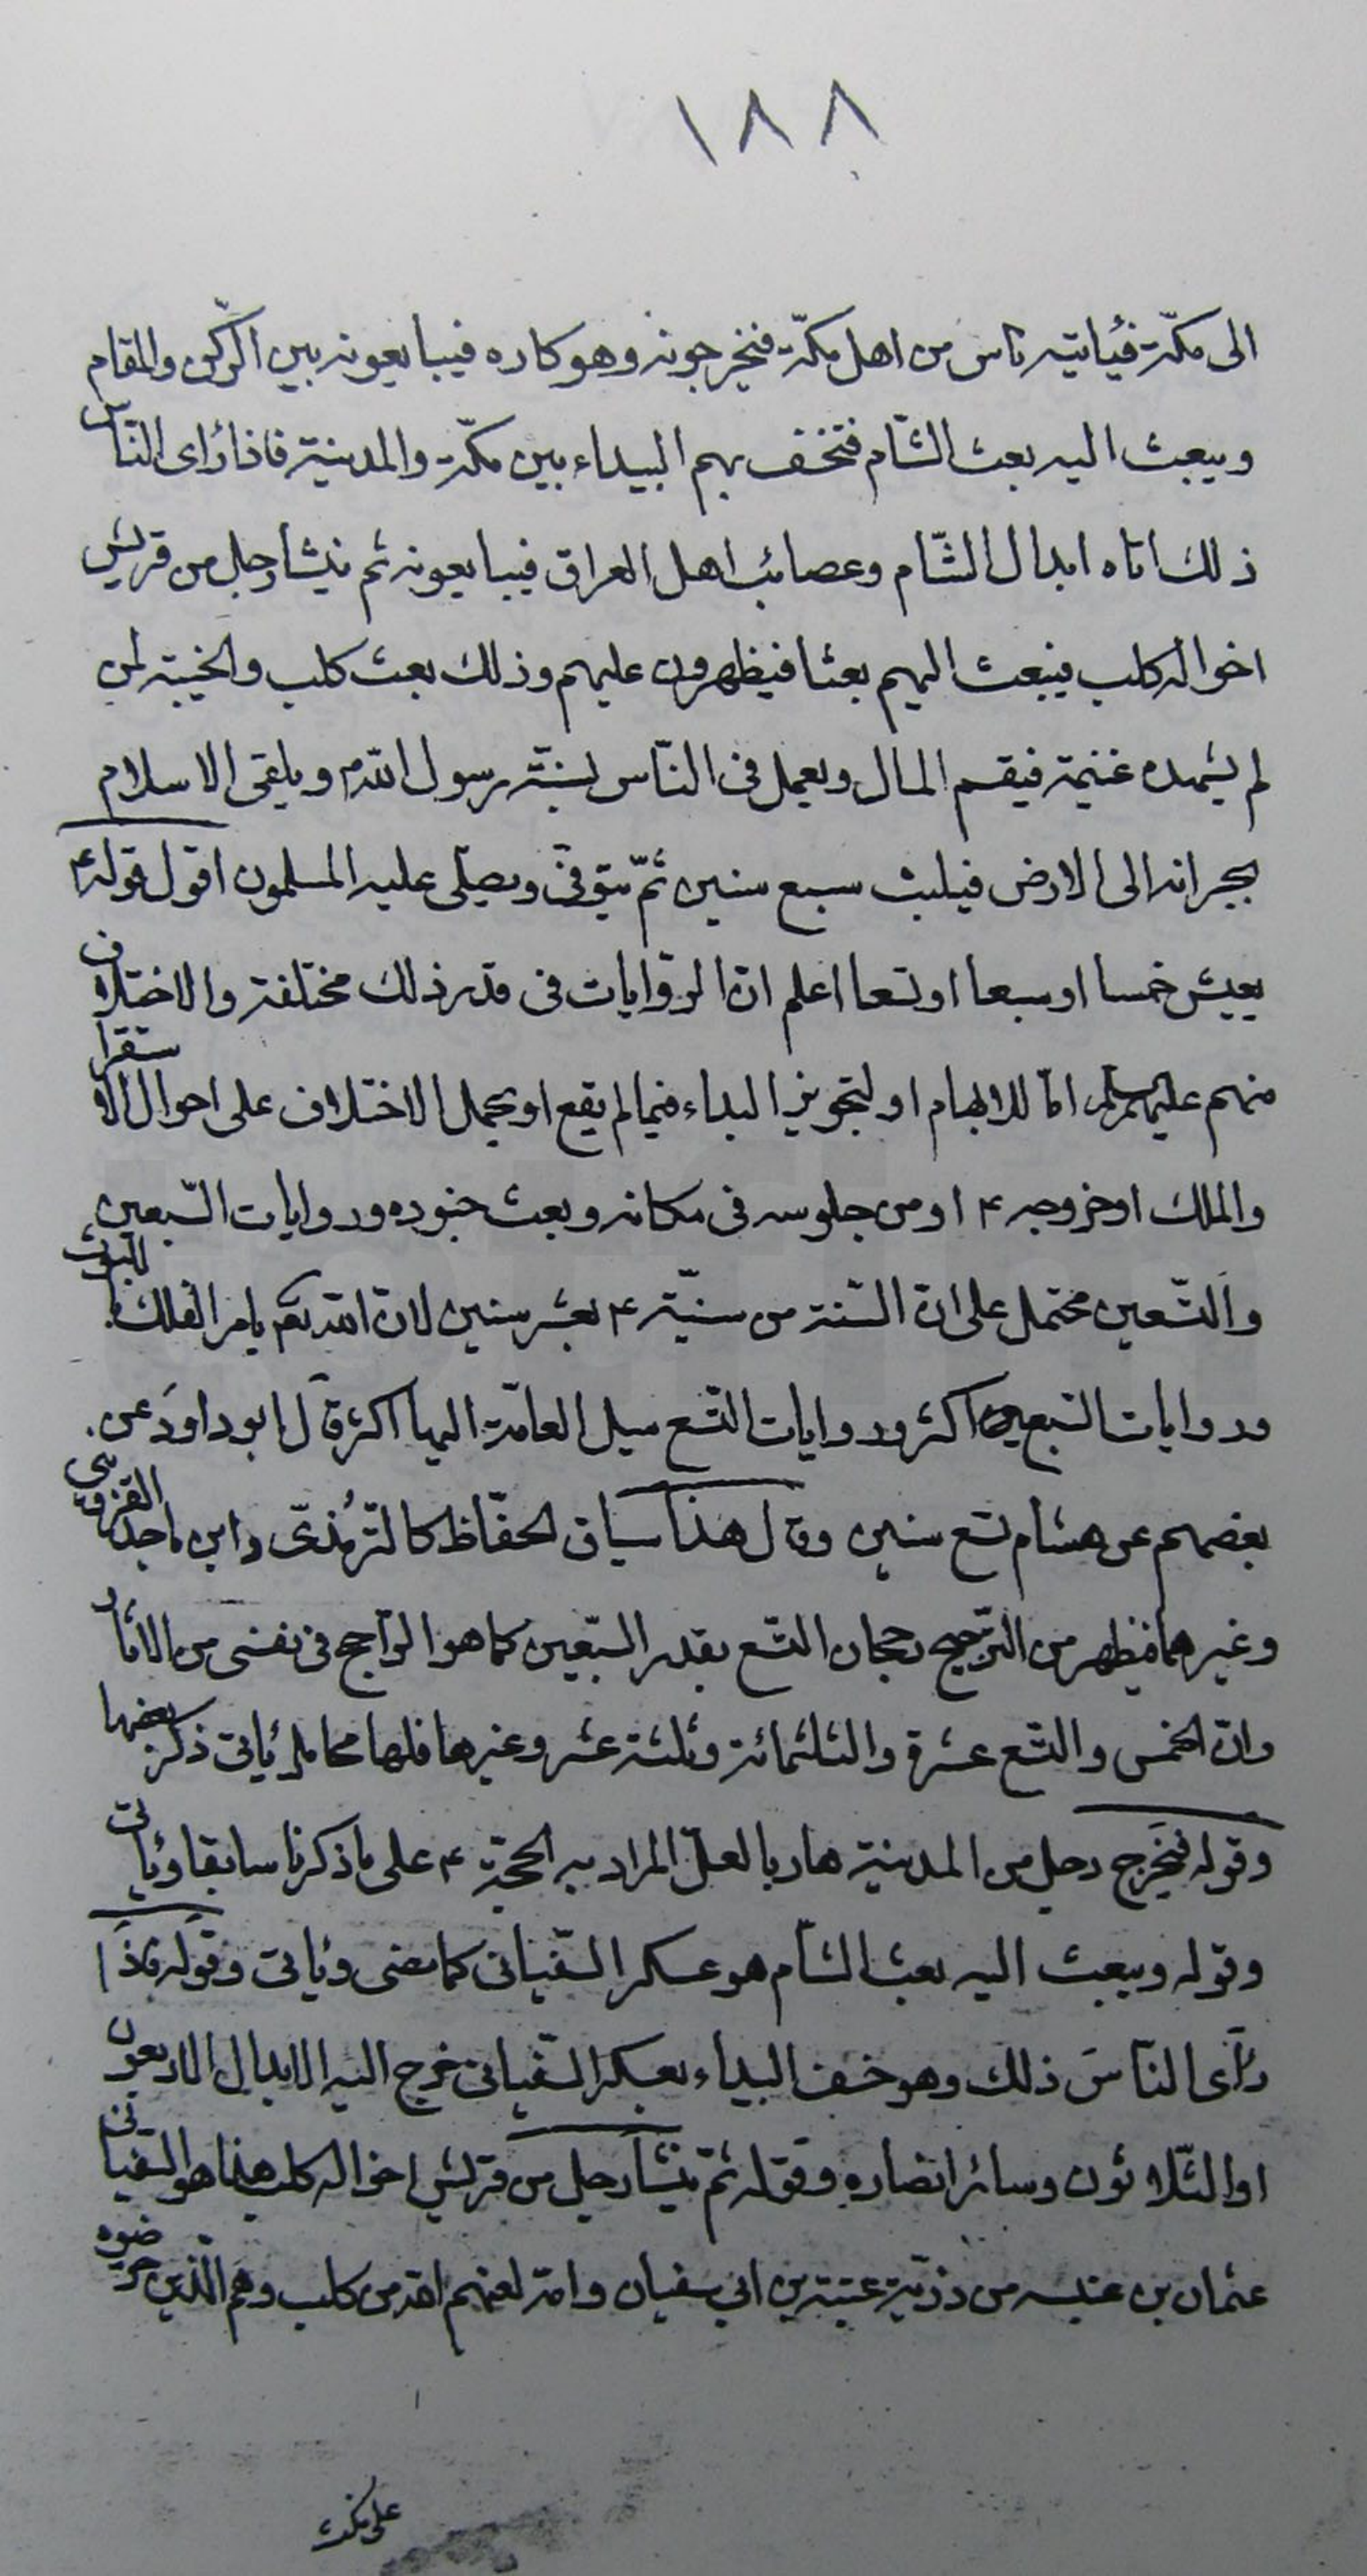 ١٨٨
الى مكّة فيأتيه ناس من اهل مكّة فيخرجونه وهو كاره فيبايعونه بين الرّكن والمقام
ويبعث اليه بعث الشّام فتخسف بهم البيداء بين مكّة والمدينة فاذا رأى النّاس
ذلك اتاه ابدال الشّام وعصائب اهل العراق فيبايعونه ثم ينشأ رجل من قريش
اخواله كلب فيبعث اليهم بعثا فيظهرون عليهم وذلك بعث كلب والخيبة لمن
لم يشهده غنيمة فيقسم المال ويعمل فى النّاس بسنّة رسول الله ص ويلقى الاسلام
بجرانه الى الارض فيلبث سبع سنين ثمّ يتوفّى ويصلّى عليه المسلمون اقول قوله ع
يعيش خمسا او سبعا او تسعا اعلم انّ الرّوايات فى قدر ذلك مختلفة والاختلاف
منهم عليهم السلام امّا للابهام او لتجويز البداء فيما لم يقع او يحمل الاختلاف على احوال الاستقرار
والملك او خروجه ع او من جلوسه فى مكانه وبعث جنوده وروايات السّبعين
والتّسعين محتمل على انّ السّنة من سنيّه ع بعشر سنين لانّ الله تعم يامر الفلك باللبوث
وروايات السّبعين اكثر وروايات التّسع ميل العامّة اليها اكثر قال ابو داود عن
بعضهم عن هشام تسع سنين وقال هذا سياق الحفّاظ كالتّرمذىّ وابن ماجه القزوينى
وغيرهما فيظهر من التّرجيح رجحان التّسع بقدر السّبعين كما هو الرّاجح فى نفسى من الاثار
وانّ الخمس والتّسع عشرة والثلثمائة وثلثة عشر وغيرها فلها محامل يأتى ذكر بعضها
وقوله فيخرج رجل من المدينة هاربا لعلّ المراد به الحجّة ع على ما ذكرنا سابقا ويأتى
وقوله ويبعث اليه بعث الشّام هو عسكر السّفيانى كما مضى ويأتى وقوله فاذا
رأى النّاس ذلك وهو خسف البيداء بعسكر السّفيانى خرج اليه الابدال الاربعون
او الثّلاثون وسائر انصاره وقوله ثمّ ينشأ رجل من قريش اخواله كلب هذا هو السّفيانى
عثمان بن عنبسه من ذرّيّة عتبة بن ابى سفيان وامّه لعنهم الله من كلب وهم الّذين حرّضوه
على